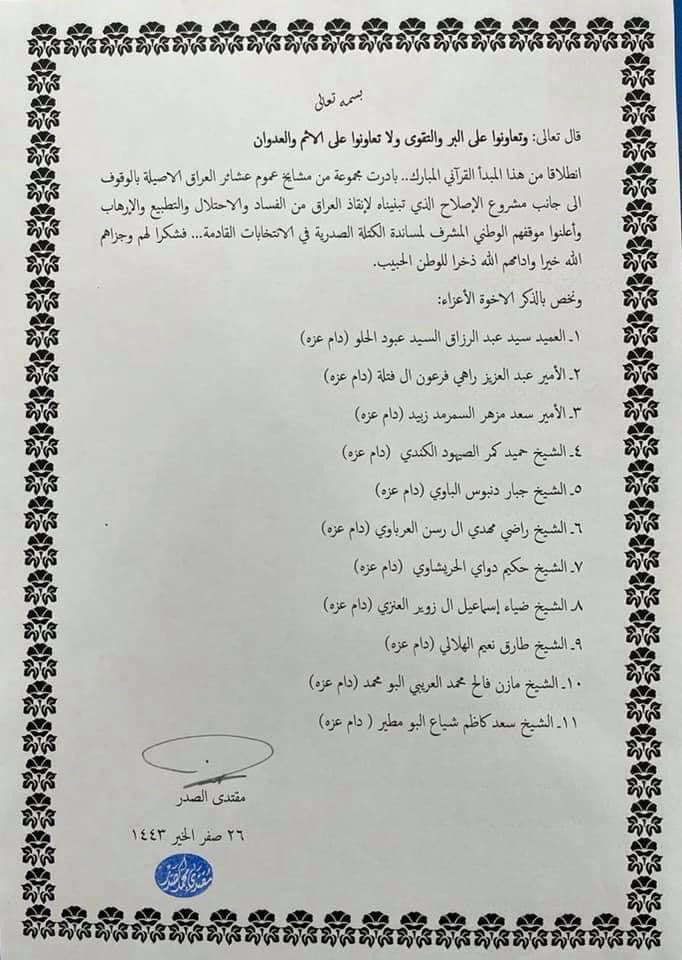 بسمه تعالى
قال تعالى: وتعاونوا على البر والتقوى ولا تعاونوا على الاثم والعدوان
انطلاقا من هذا المبدأ القرآني المبارك.. بادرت مجموعة من مشايخ عموم عشائر العراق الاصيلة بالوقوف
الى جانب مشروع الإصلاح الذي تبنيناه لإنقاذ العراق من الفساد والاحتلال والتطبيع والإرهاب
وأعلنوا موقفهم الوطني المشرف لمساندة الكتلة الصدرية في الانتخابات القادمة... فشكرا لهم وجزاهم
الله خيرا وادامهم الله ذخرا للوطن الحبيب.
ونخص بالذكر الاخوة الأعزاء:
١ـ العميد سيد عبد الرزاق السيد عبود الحلو (دام عزه)
٢ـ الأمير عبد العزيز راهي فرعون ال فتلة (دام عزه)
٣ـ الأمير سعد مزهر السمرمد زبيد (دام عزه)
٤ـ الشيخ حميد كمر الصيهود الكندي (دام عزه)
٥ـ الشيخ جبار دنبوس الباوي (دام عزه)
٦ـ الشيخ راضي مهدي ال رسن العرباوي (دام عزه)
٧ـ الشيخ حكيم دواي الحريشاوي (دام عزه)
٨ـ الشيخ ضياء إسماعيل ال زوير العنزي (دام عزه)
٩ـ الشيخ طارق نعيم الهلالي (دام عزه)
١٠ـ الشيخ مازن فالح محمد العريبي البو محمد (دام عزه)
١١ـ الشيخ سعد كاظم شياع البو مطير ( دام عزه)
مقتدى الصدر
٢٦ صفر الخير ١٤٤٣